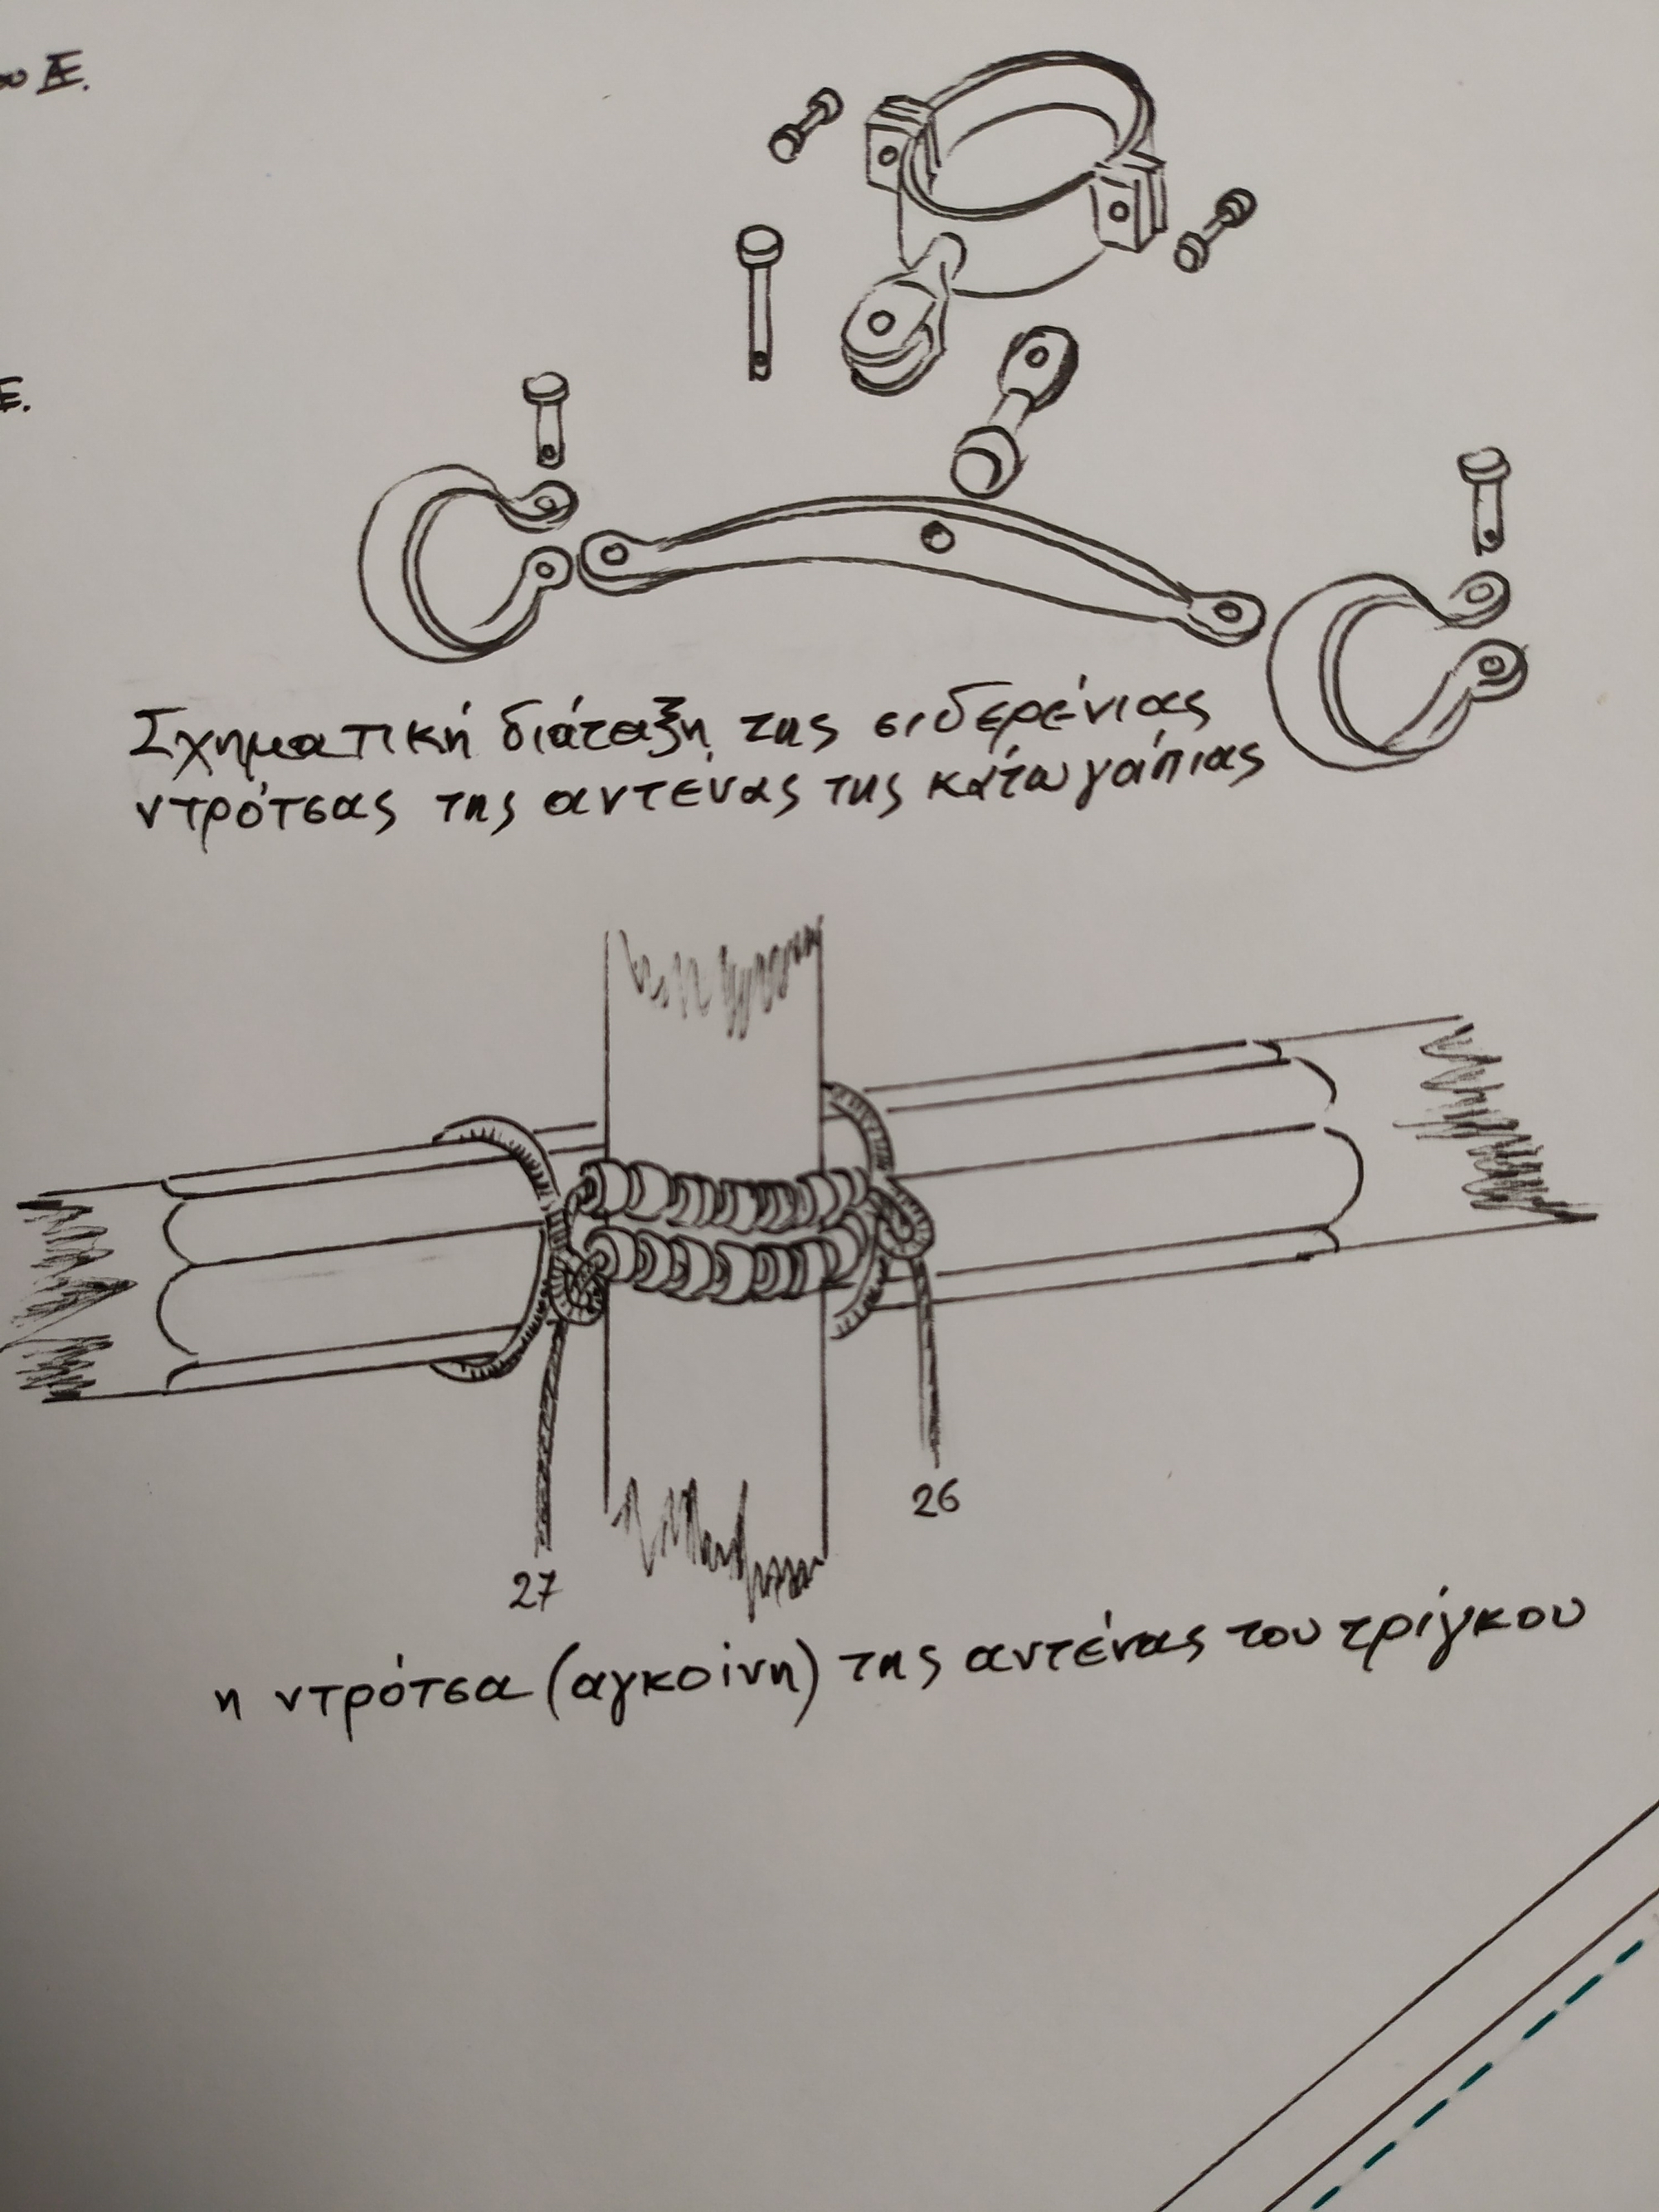 Æ.
Ε.
Σχηματική διάταξη της σιδερένιας
ντρότσας της αντένας της κάτω γάπιας
26
27
η ντρότσα (αγκοίνη) της αντένας του τρίγκου